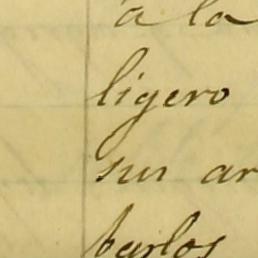 a la
ligero
sus ar
barlos